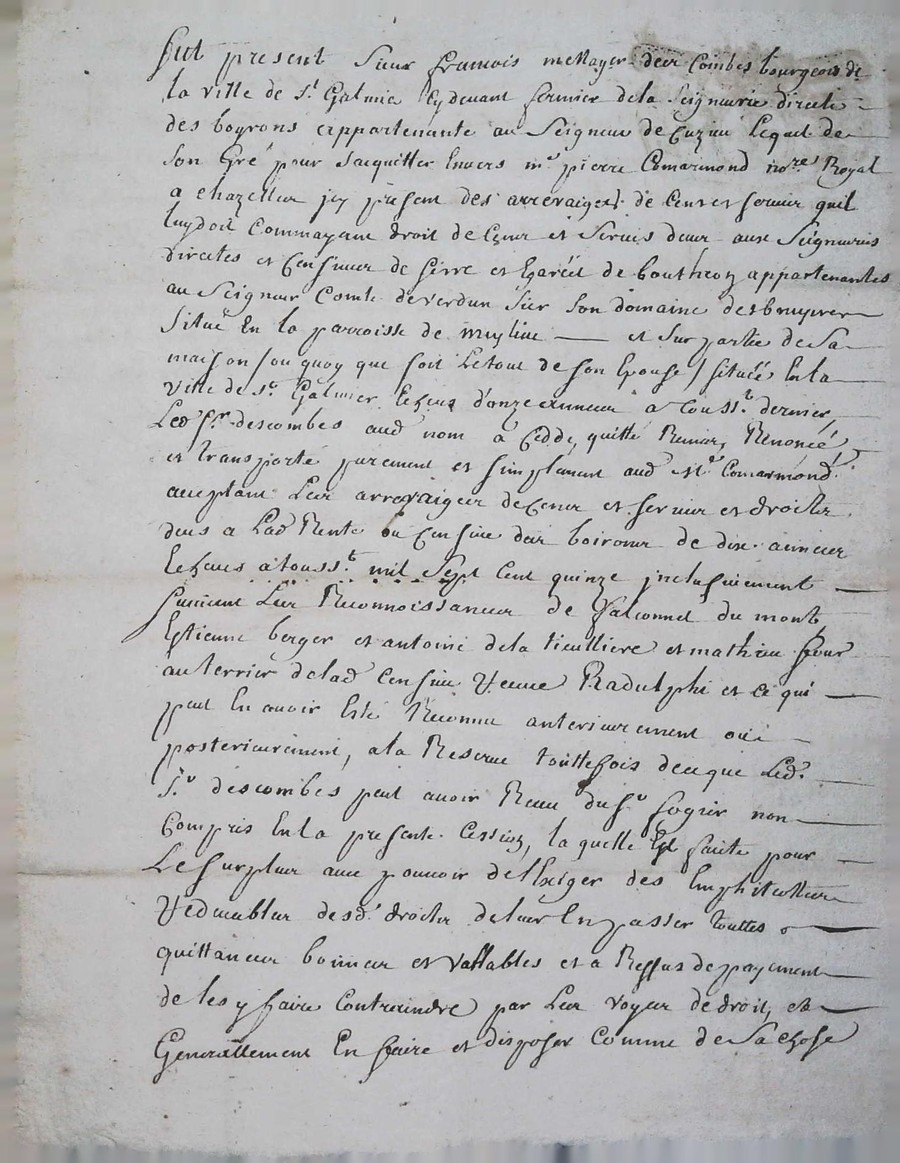 fut present Sieur francois mettayer des Combes bourgeois de
la ville de St Galmie Cydeuant fermier dela Seigneurie directe
des boyrons appartenante au Seigneur de Cuzieu Lequel de
Son Gré pour sacquitter Enuers me pierre Comarmond nore Royal
a chazelles jcy present des arreraiges de Cens et seruis quil
luy doit Comme ayant droit de Cens et Seruis deus aux Seigneuries
directes et Censiues de et de boutheon appartenantes
au Seigneur Comte de verdun Sur Son domaine des bruyeres
Situé En la parroisse de et Sur partie de Sa
maison sou quoy que soit Letout de son Epouse / située En la
ville de St Galmier Echeus d'onze années a Touss.t dernier
Led Sr descombes aud nom a Cedde, quitté Remis, Renoncé
et transporté purement et simplement aud Me Comarmond
aceptant Les arreraiges de Cens et seruis et droits
deus a Lad Rente ou Censiue des boirons de dix années
Echeues a touss.t mil Sept Cent quinze jnclusiuement
suiuant Les Reconnoissances de falconnet du mont,
Estienne berger et antoine dela tieulliere et mathieu four
au terrier delad Censiue et ce qui
peut En auoir Esté Reconnu anterieurement ou
posterieurement, a la Reserue touttefois de ce que Led.
Sr descombes peut auoir Receu du Sr non
Compris En la presente Cession, la quelle Est faite pour
Le surplus auec pouuoir de lExiger des Emphiteottes
Redeuables desd. droits de leur En passer touttes
quittances bonnes et Vallables et a Reffus de payement
de les y faire Contraindre par Les voyes de droit, et
Generallement En faire et disposer Comme de Sa chose